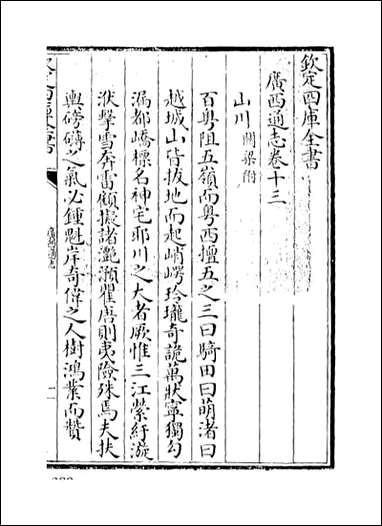 欽定四庫全書
廣西通志卷十三
山川關梁附
百粤阻五嶺而粤西擅五之三曰騎田曰萌渚曰
越城山皆拔地而起峭崿玲瓏奇詭萬狀寧獨勾
漏都嶠標名神宅耶川之大者厥惟三江縈紆漩
洑擊雪奔雷顧擬諸灔澦瞿唐則夷險殊焉夫扶
輿磅礴之氣必鍾魁岸奇偉之人樹鴻業而贊